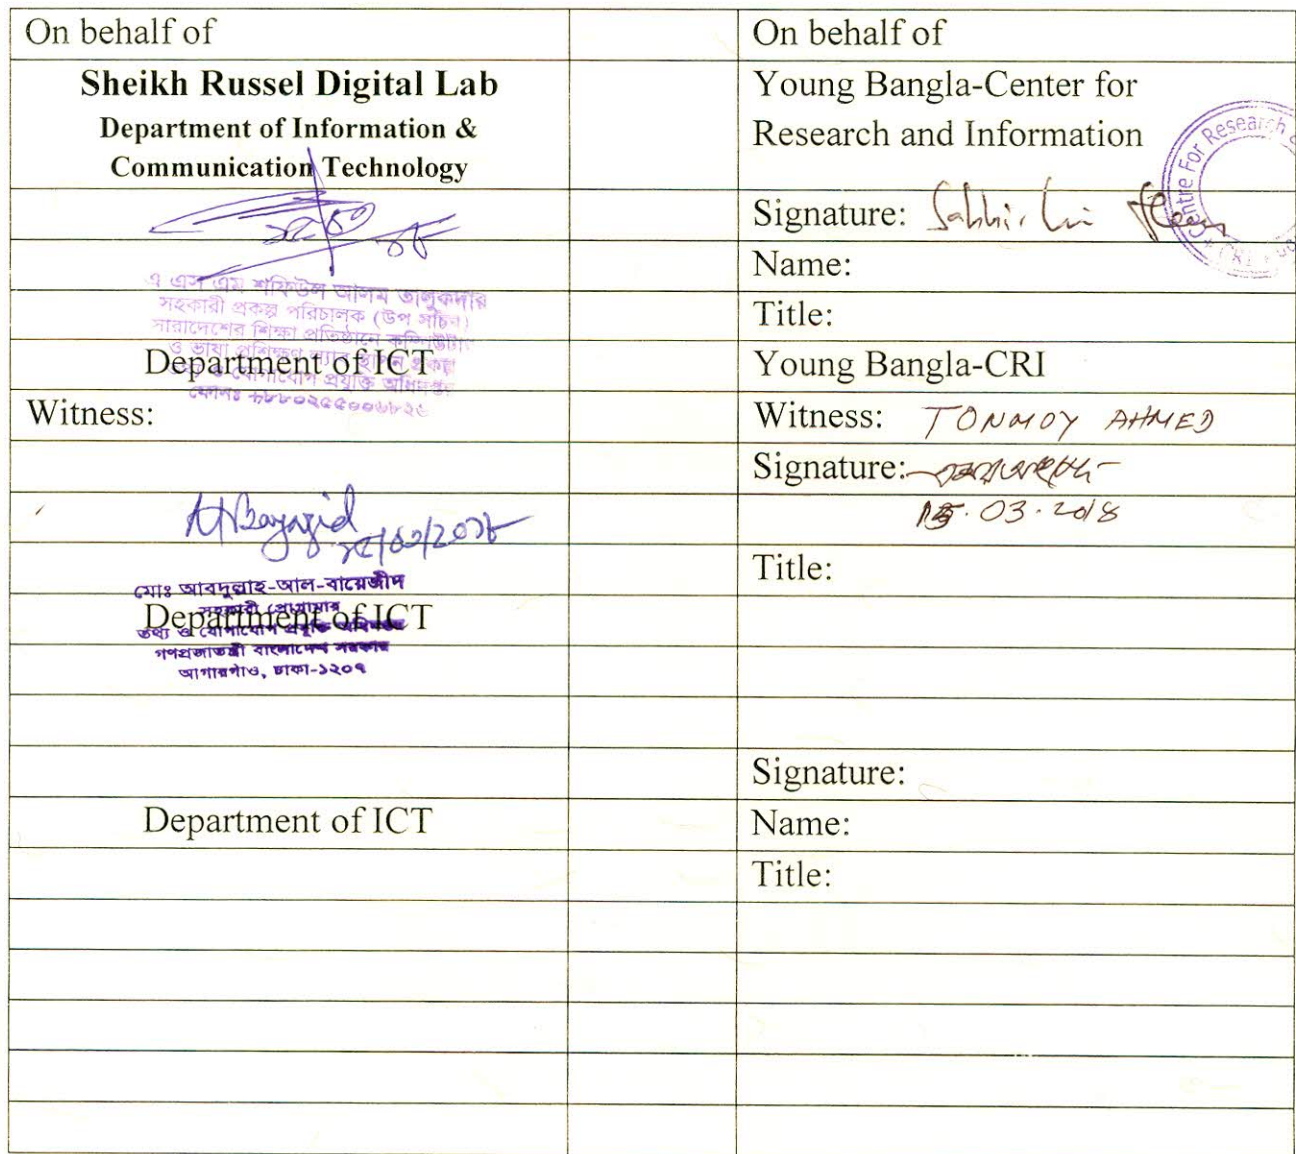 On behalf of
Sheikh Russel Digital Lab
Department of Information &
Communication Technology
এ এস এম শফিউল আলম তালুকদার
সহকারী প্রকল্প পরিচালক (উপ সচিব)
সারাদেশের শিক্ষা প্রতিষ্ঠানে কম্পিউটার
ও ভাষা প্রশিক্ষণ ল্যাব স্থাপন প্রকল্প
Department of ICT
ও যোগাযোগ প্রযুক্তি অধিদপ্তর
ফোনঃ
Witness:
মোঃ আবদুল্লাহ-আল-বায়েজীদ
সহকারী প্রোগ্রামার
Department of ICT
তথ্য ও যোগাযোগ প্রযুক্তি অধিদপ্তর
গণপ্রজাতন্ত্রী বাংলাদেশ সরকার
আগারগাঁও, ঢাকা-১২০৭
Department of ICT
On behalf of
Young Bangla-Center for
Research and Information
Centre For Research
CRI
Signature:
Name:
Title:
Young Bangla-CRI
Witness: TONMOY AHMED
Signature:
15.03.2018
Title:
Signature:
Name:
Title: